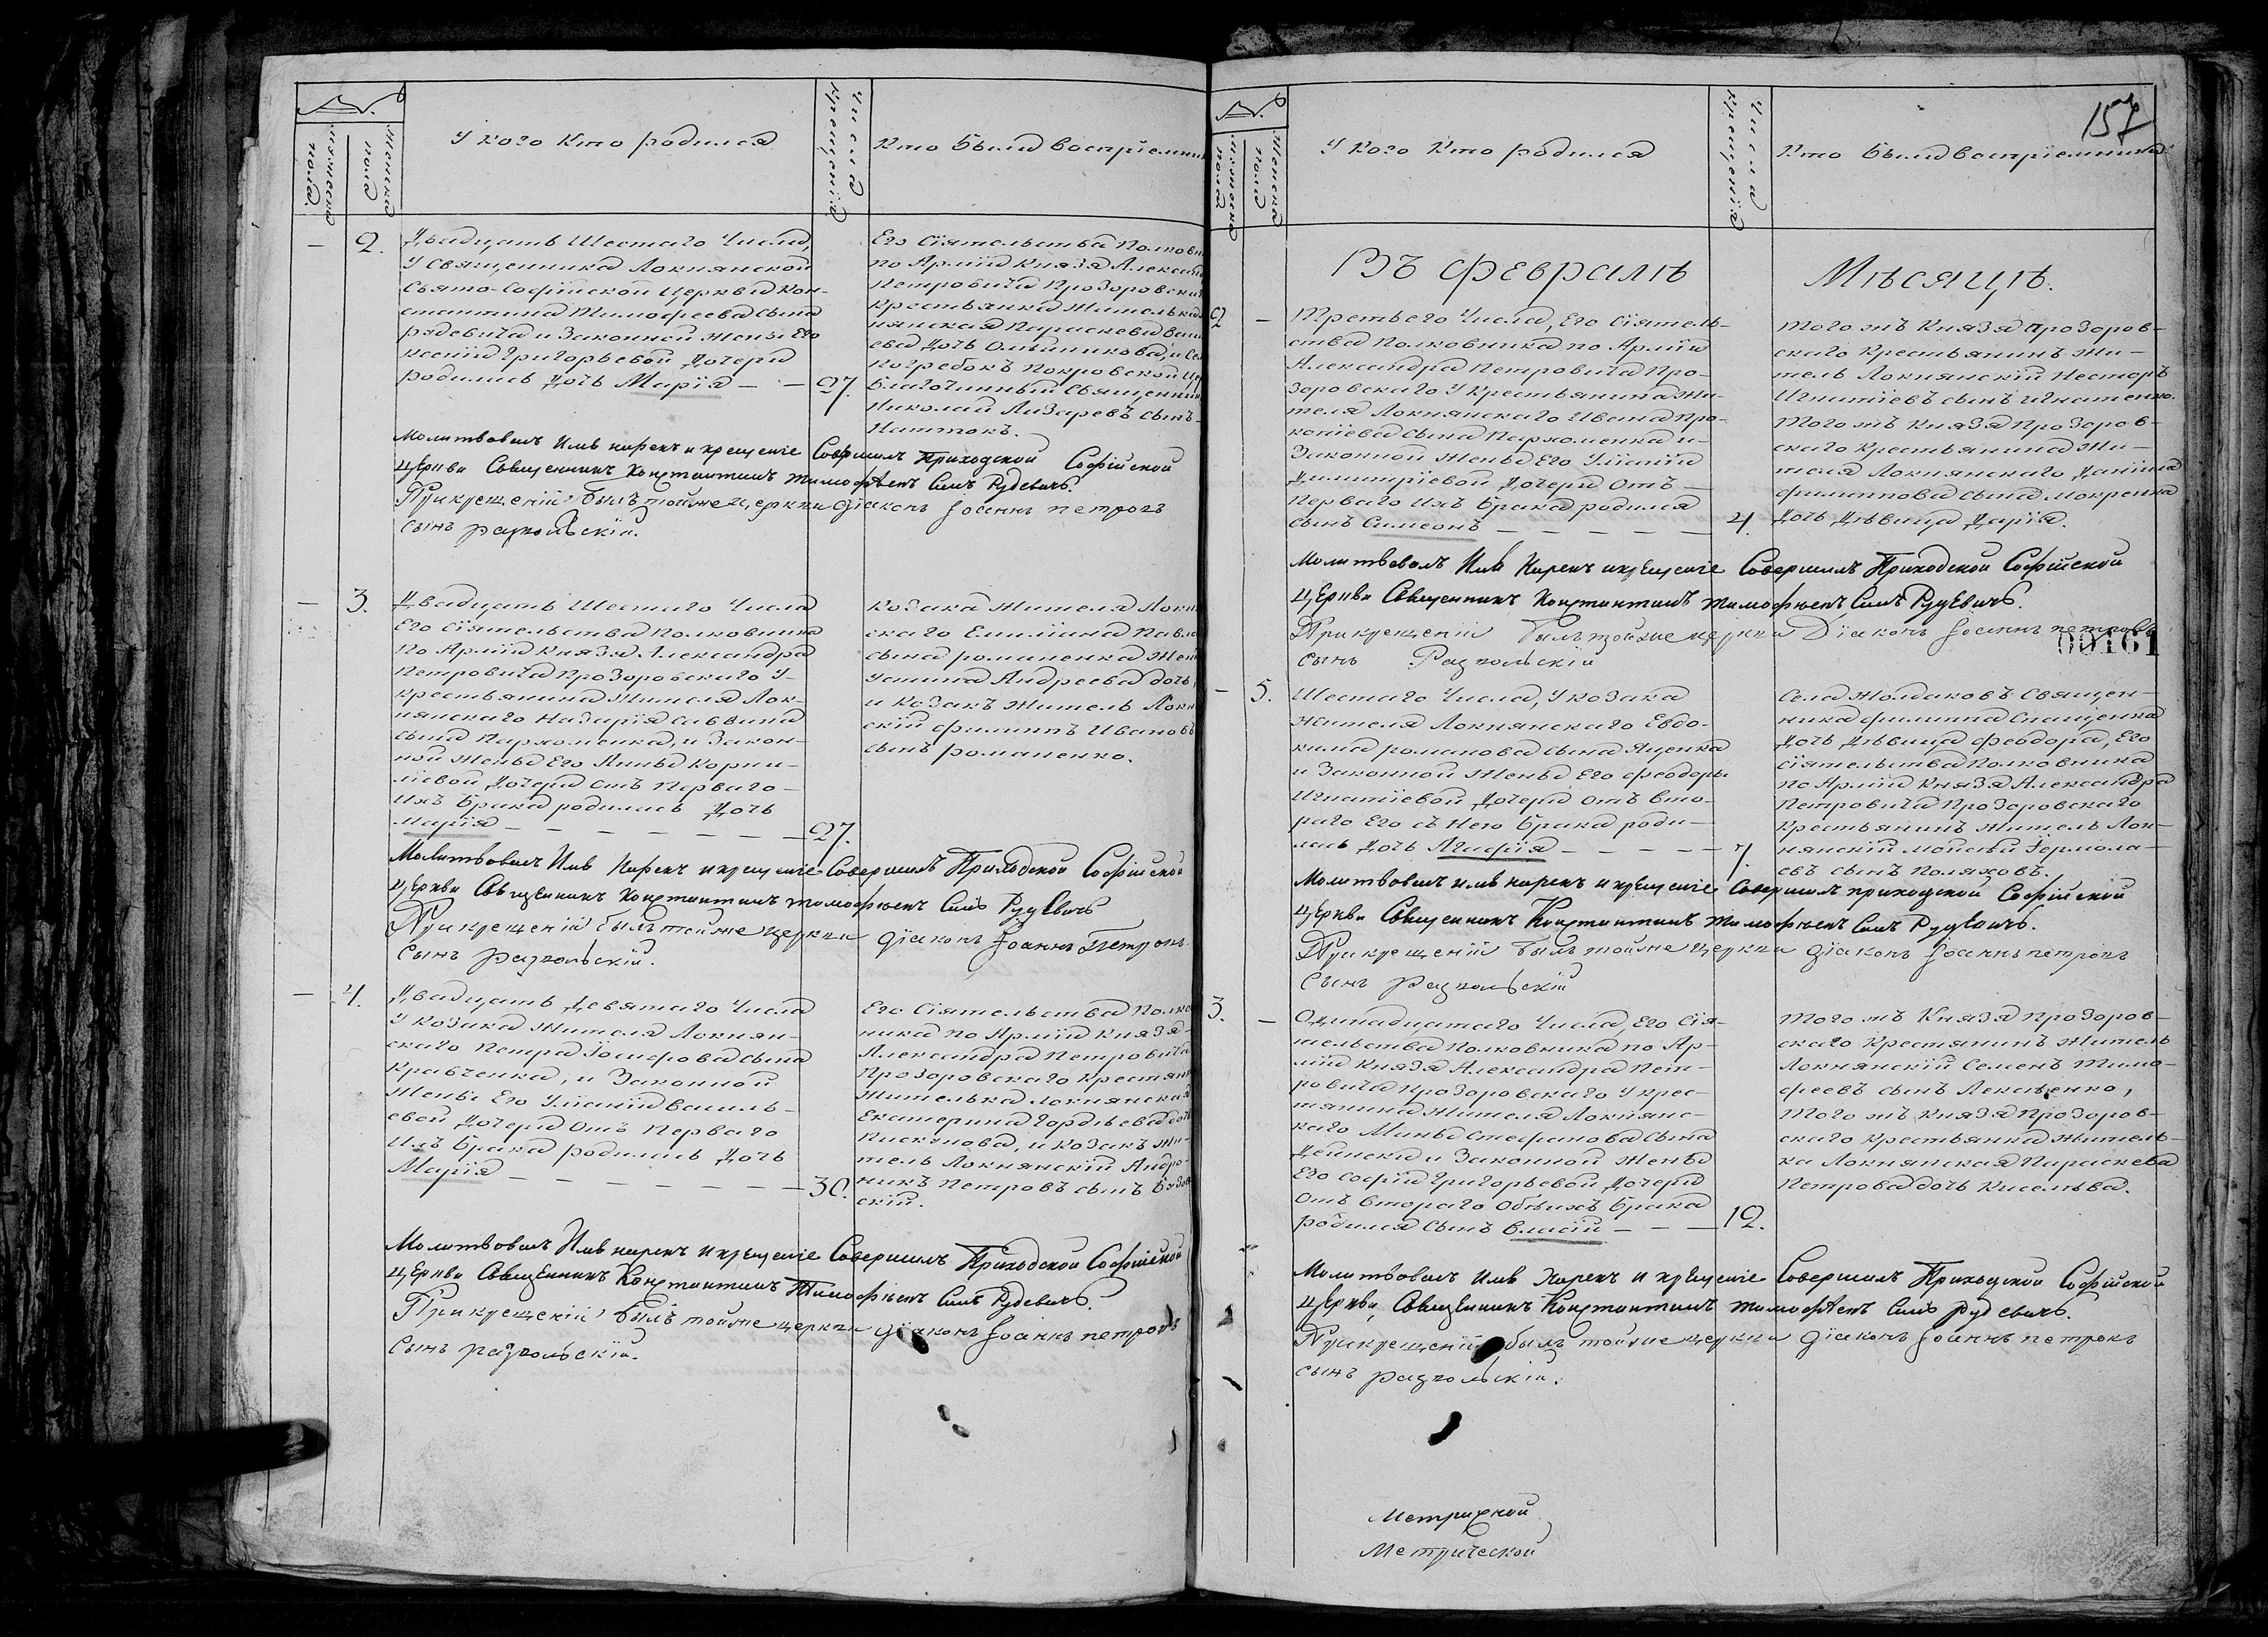 №.
мужеска пола.
женска пола
У кого кто родился
Числа крещенія
Кто были воспріемник
2.
Двадцать Шестаго Числа,
У Священника Локнянской
Свято-Софійской Церкви Кон-
стантина Тимофеева сына
рудевича и Законной Жены Его
ксеніи Григорьевой Дочери
родилась Дочь Марія — — 27.
Его Сіятельства Полковн
по Арміи Князя Алексан
Петровича Прозоровскаг
крестьянка Жителька Лок
нянская Параскева Васи
ева Дочь Ольшникова, и Сел
Погребокъ Покровской Цер
Благочинный Священник
Николай Лазаревъ сынъ
Молитвовалъ Имя нарекъ и крещеніе Совершилъ Приходской Софійской
церкви Священникъ Константинъ тимофѣевъ Сынъ Рудевичъ.
При крещеніи былъ тойже церкви діаконъ Іоаннъ петровъ
сынъ разпольскій.
3.
Двадцать Шестаго Числа
Его Сіятельства Полковника
По Арміи Князя Александра
Петровича Прозоровскаго У
крестьянина Жителя Лок-
нянскаго Назарія Саввина
сына Пархоменка, и Закон-
ной Жены Его Анны Корни-
ліевой Дочери отъ Перваго
Ихъ брака родилась Дочь
Марія — — — — — — — 27.
козака Жителя Локня
скаго Емиліана Павло
сына романенка Жен
Устина Андреева дочь,
и козакъ Житель Локн
скій филиппъ Ивановъ
сынъ романенко.
Молитвовалъ Имя Нарекъ и крещеніе Совершилъ Приходской Софійской
Церкви Священникъ Константинъ тимофѣевъ Сынъ Рудевичъ
При крещеніи былъ тойже церкви діаконъ Іоаннъ Петровъ
Сынъ разпольскій.
4.
Двадцать Девятаго Числа
У козака Жителя Локнян-
скаго Петра Іосифова сына
Кравченка, и Законной
Жены Его Уліаніи Василь-
евой Дочери Отъ Перваго
Ихъ брака родилась Дочь
Марія — — — — — — — 30.
Его Сіятельства Полко
ника по Арміи Князя
Александра Петровича
Прозоровскаго Крестянк
Жителька Локнянская
Екатерина Гордѣева дочь
Пискунова, и козакъ Жи-
тель Локнянскій Андро-
никъ Петровъ сынъ
скій.
Молитвовалъ Имя нарекъ и крещеніе Совершилъ Приходской Софійской
церкви Священникъ Константинъ Тимофѣевъ Сынъ Рудевичъ.
При крещеніи былъ тойже церкви діаконъ Іоаннъ петровъ
Сынъ разпольскій.
157
№.
мужеска пола
женска пола
У кого кто родился
Числа крещенія
Кто были воспріемники
Въ февралѣ Мѣсяцѣ.
2
Третьего Числа, Его Сіятель-
ства Полковника по Арміи
Александра Петровича Про-
зоровскаго У крестьянина Жи-
теля Локнянскаго Ивана Про-
копіева сына Пархоменка и
Законной Жены Его Уліаніи
Димитріевой Дочери Отъ
Перваго Ихъ брака родился
сынъ Симеонъ — — — — — 4.
Того жъ Князя Прозоров-
скаго Крестьянинъ Жи-
тель Локнянскій Несторъ
Игнатіевъ сынъ Игнатенко.
Того жъ Князя Прозоров-
скаго Крестьянина Жи-
теля Локнянскаго Даніила
филиппова сына Мокренка
Дочь Дѣвица Дарія.
Молитвовалъ Имя Нарекъ и крещеніе Совершилъ Приходской Софійской
Церкви Священникъ Константинъ тимофѣевъ Сынъ Рудевичъ.
При крещеніи былъ тойже церкви Діаконъ Іоаннъ петровъ
сынъ Разпольскій
00161
5.
Шестаго Числа, У козака
Жителя Локнянскаго Евдо-
кима романова сына Яценка
и Законной Жены Его феодоры
Игнатіевой Дочери отъ вто-
раго Его съ Нею брака роди-
лась Дочь Агафія — — — — 7.
Села Жолдаковъ Священ-
ника филиппа Спащенка
Дочь Дѣвица феодора, Его
Сіятельства Полковника
по Арміи Князя Александра
Петровича Прозоровскаго
Крестьянинъ Житель Лок-
нянскій Моисей Ермола-
евъ сынъ Поляковъ.
Молитвовалъ имя нарекъ и крещеніе Совершилъ приходской Софійской
Церкви Священникъ Константинъ тимофѣевъ Сынъ Рудевичъ.
При крещеніи былъ тойже церкви діаконъ Іоаннъ петровъ
Сынъ разпольскій
3.
Одинадцатаго Числа, Его Сія-
тельства Полковника по Ар-
міи Князя Александра Пет-
ровича Прозоровскаго У крес-
тянина Жителя Локнянс-
каго Мины Стефанова сына
Дейнеки и Законной Жены
Его Софіи Григорьевой Дочери
Отъ втораго Обѣихъ брака
родился сынъ Власій — — — 12.
Того жъ Князя Прозоров-
скаго Крестянинъ Житель
Локнянскій Семенъ Тимо-
феевъ сынъ Лексѣенко,
Того жъ Князя Прозоров-
скаго Крестьянка Житель-
ка Локнянская Параскева
Петрова дочь Киселѣва.
Молитвовалъ Имя Нарекъ и крещеніе Совершилъ Приходской Софійской
церкви, Священникъ Константинъ тимофѣевъ Сынъ рудевичъ.
При крещеніи былъ тойже церкви діаконъ Іоаннъ петровъ
сынъ разпольскій.
Метрихной
Метрической